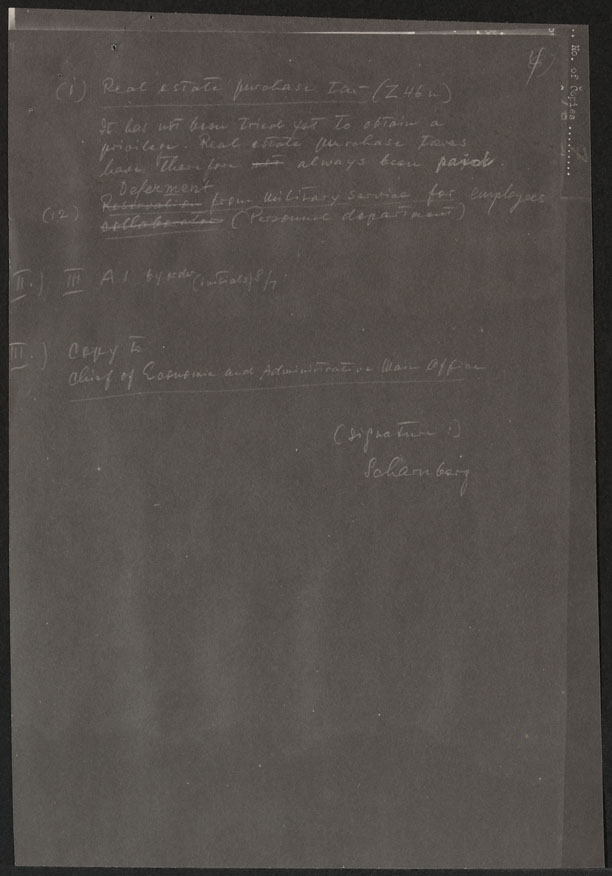 4)
No. of Copies ..........
(1) Real estate purchase tax (Z 46 n)
It has not been tried yet to obtain a
privilege. Real estate purchase taxes
have therefore always been paid.
Deferment
(12) Reservation from military service for employees
collaborator (Personnel department)
II.) III A.1 by order (initials) 8/7.
III.) Copy to
Chief of Economic and Administrative Main Office
(signature:)
Scharnberg